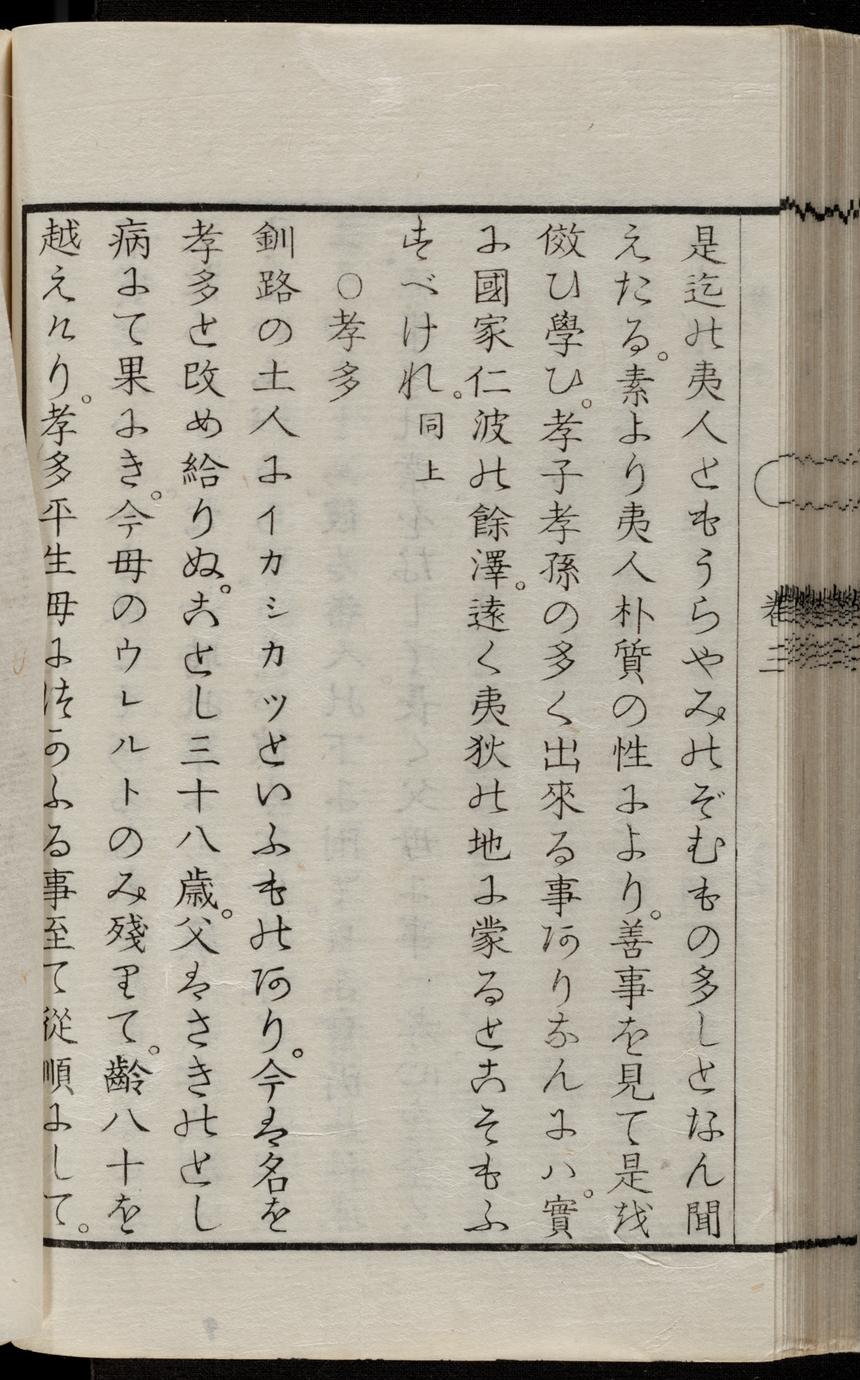 是迄の夷人ともうらやみのぞむもの多しとなん聞
えたる。素より夷人朴質の性により。善事を見て是を
倣ひ學ひ。孝子孝孫の多く出來る事ありなんにハ。實
に國家仁波の餘澤。遠く夷狄の地に蒙るとこそもふ
すべけれ。同上
〇孝多
釧路の土人にイカシカツといふものあり。今は名を
孝多と改め給りぬ。ことし三十八歳。父はさきのとし
病にて果にき。今母のウレルトのみ殘りて。齡八十を
越えけり。孝多平生母につかふる事至て從順にして。
卷三